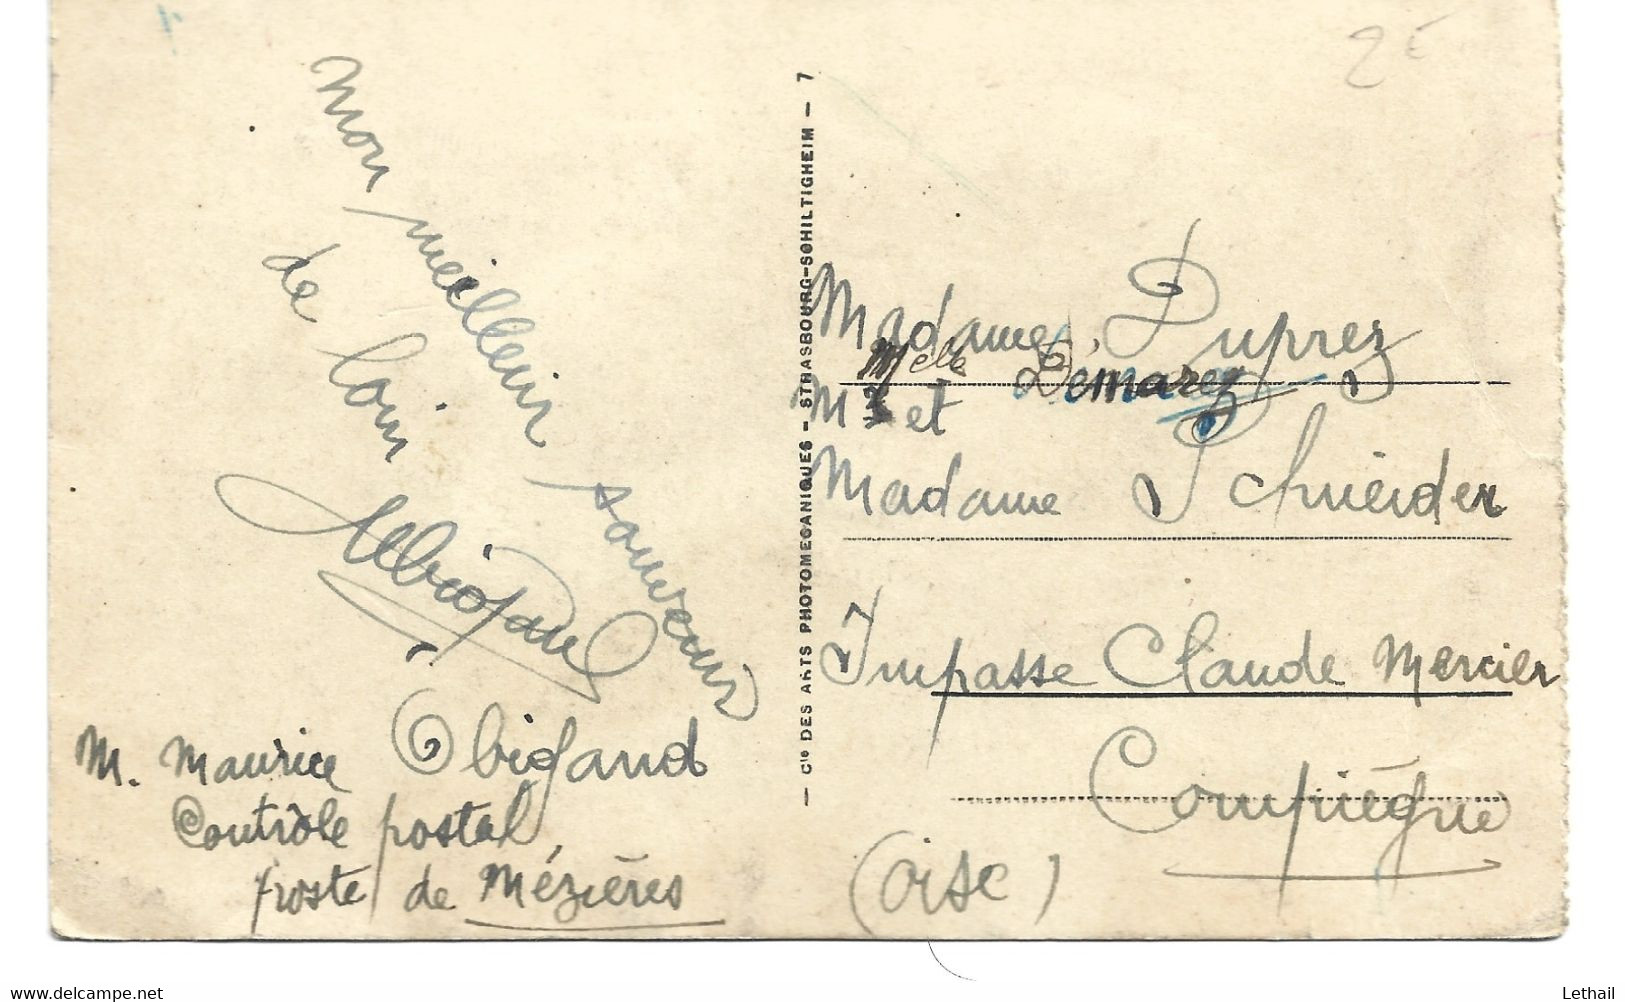 2€
Mon meilleur souvenir
de loin
M. Maurice Obigand
Contrôle postal
poste de Mézières
— Cie DES ARTS PHOTOMECANIQUES – STRASBOURG-SCHILTIGHEIM — 7
Madame Duprez
Melle Démarez
M et
Madame Schneider
Impasse Claude Mercier
Compiègne
(Oise)
www.delcampe.net
Lethail